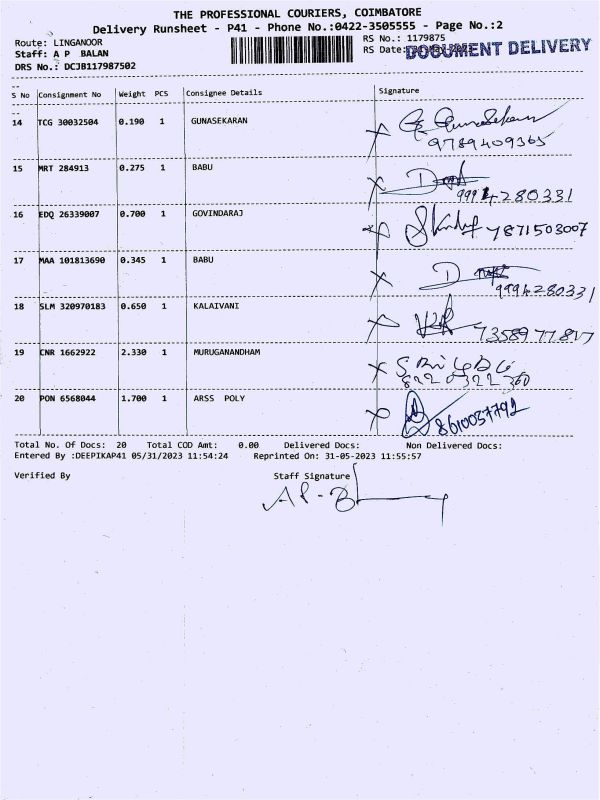 THE PROFESSIONAL COURIERS, COIMBATORE
Delivery Runsheet - P41 - Phone No.:0422-3505555 - Page No.:2
Route: LINGANOOR
RS No.: 1179875
Staff: A P BALAN
RS Date:
DOCUMENT DELIVERY
DRS No.: DCJB117987502
S No Consignment No Weight PCS Consignee Details Signature
14 TCG 30032504 0.190 1 GUNASEKARAN G. GunaSekaran
9789409365
15 MRT 284913 0.275 1 BABU
9994280331
16 EDQ 26339007 0.700 1 GOVINDARAJ 7871503007
17 MAA 101813690 0.345 1 BABU
9994280331
18 SLM 320970183 0.650 1 KALAIVANI
19 CNR 1662922 2.330 1 MURUGANANDHAM
20 PON 6568044 1.700 1 ARSS POLY
8610037792
Total No. Of Docs: 20 Total COD Amt: 0.00 Delivered Docs: Non Delivered Docs:
Entered By :DEEPIKAP41 05/31/2023 11:54:24 Reprinted On: 31-05-2023 11:55:57
Verified By Staff Signature